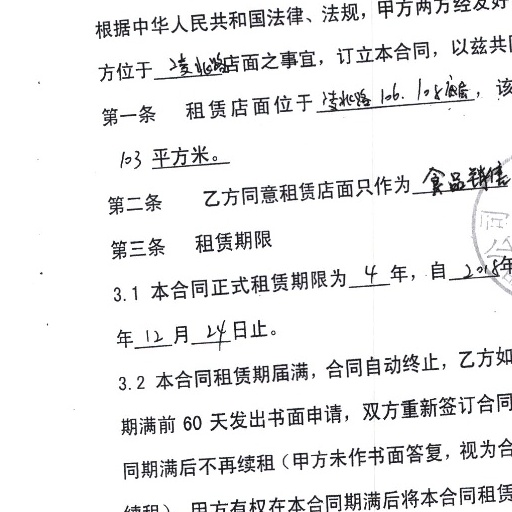 根据中华人民共和国法律、法规，甲方两方经友好
方位于 凌北路店面之事宜，订立本合同，以兹共同
第一条 租赁店面位于 凌北路 106、108底层，该
103 平方米。
第二条 乙方同意租赁店面只作为 食品销售
第三条 租赁期限
3.1 本合同正式租赁期限为 4 年，自 2015年
年 12 月 24 日止。
3.2 本合同租赁期届满，合同自动终止，乙方如
期满前 60 天发出书面申请，双方重新签订合同
同期满后不再续租（甲方未作书面答复，视为合
续租），甲方有权在本合同期满后将本合同租赁